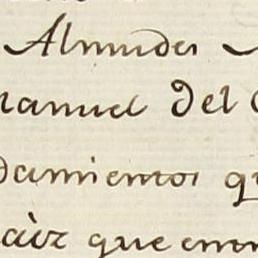 Almudes
manuel Del
damientos q
aiz que en